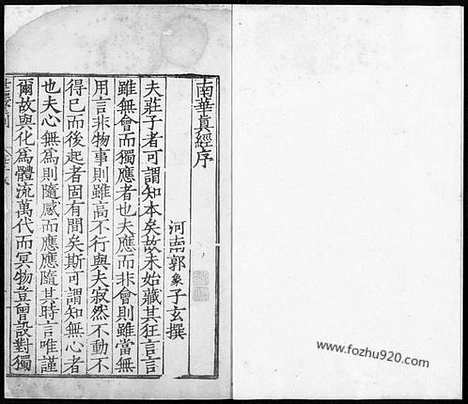 南華真經序
河南郭象子玄撰
夫莊子者可謂知本矣故未始藏其狂言言
雖無會而獨應者也夫應而非會則雖當無
用言非物事則雖高不行與夫寂然不動不
得已而後起者固有間矣斯可謂知無心者
也夫心無爲則隨感而應應隨其時言唯謹
爾故與化爲體流萬代而冥物豈曾設對獨
www.fozhu920.com